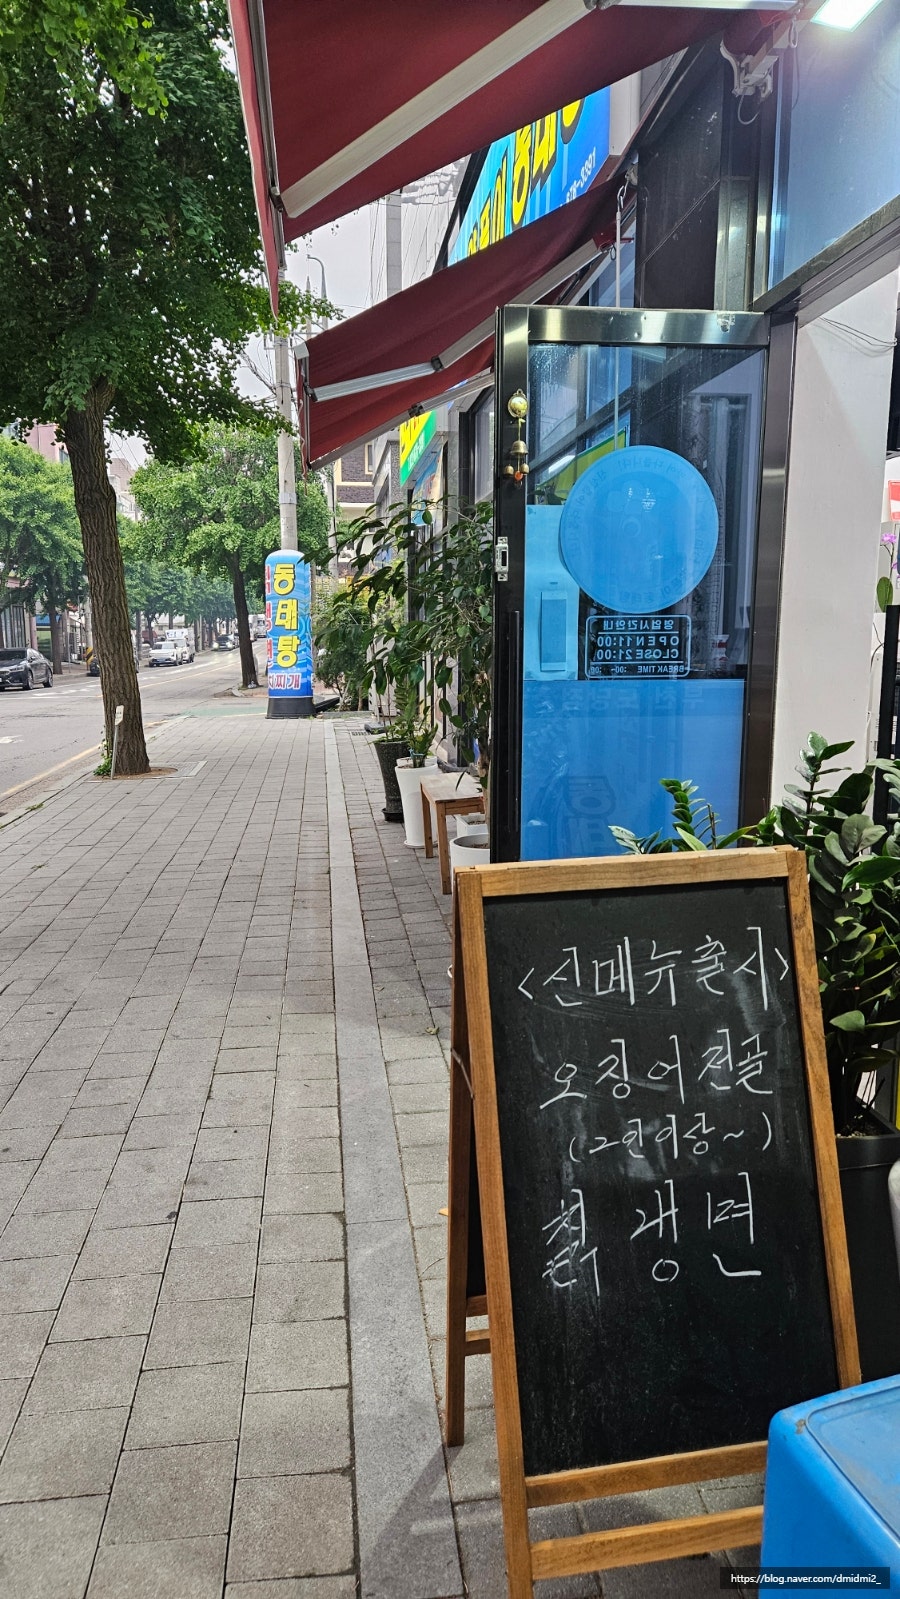 동태탕
찌개
영업시간안내
OPEN 11:00
CLOSE 21:00
BREAK TIME
<신메뉴출시>
오징어전골
(2인이상~)
칡냉면
https://blog.naver.com/dmidmi2_